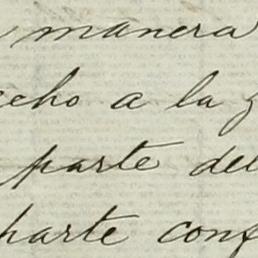 manera
echo a la g
parte del
parte conf